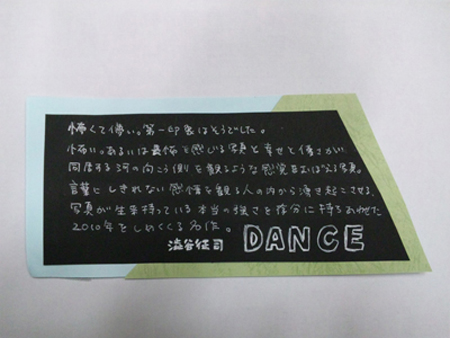 怖くて儚い。第一印象はそうでした。
怖い。あるいは畏怖を感じる写真と幸せと儚さが
同居する河の向こう側を観るような感覚をおぼえる写真。
言葉としきれない感情を観る人の内から湧き起こさせる、
写真が生来持っている本当の強さを存分に持ちあわせた
2010年をしめくくる名作。
澁谷征司 DANCE